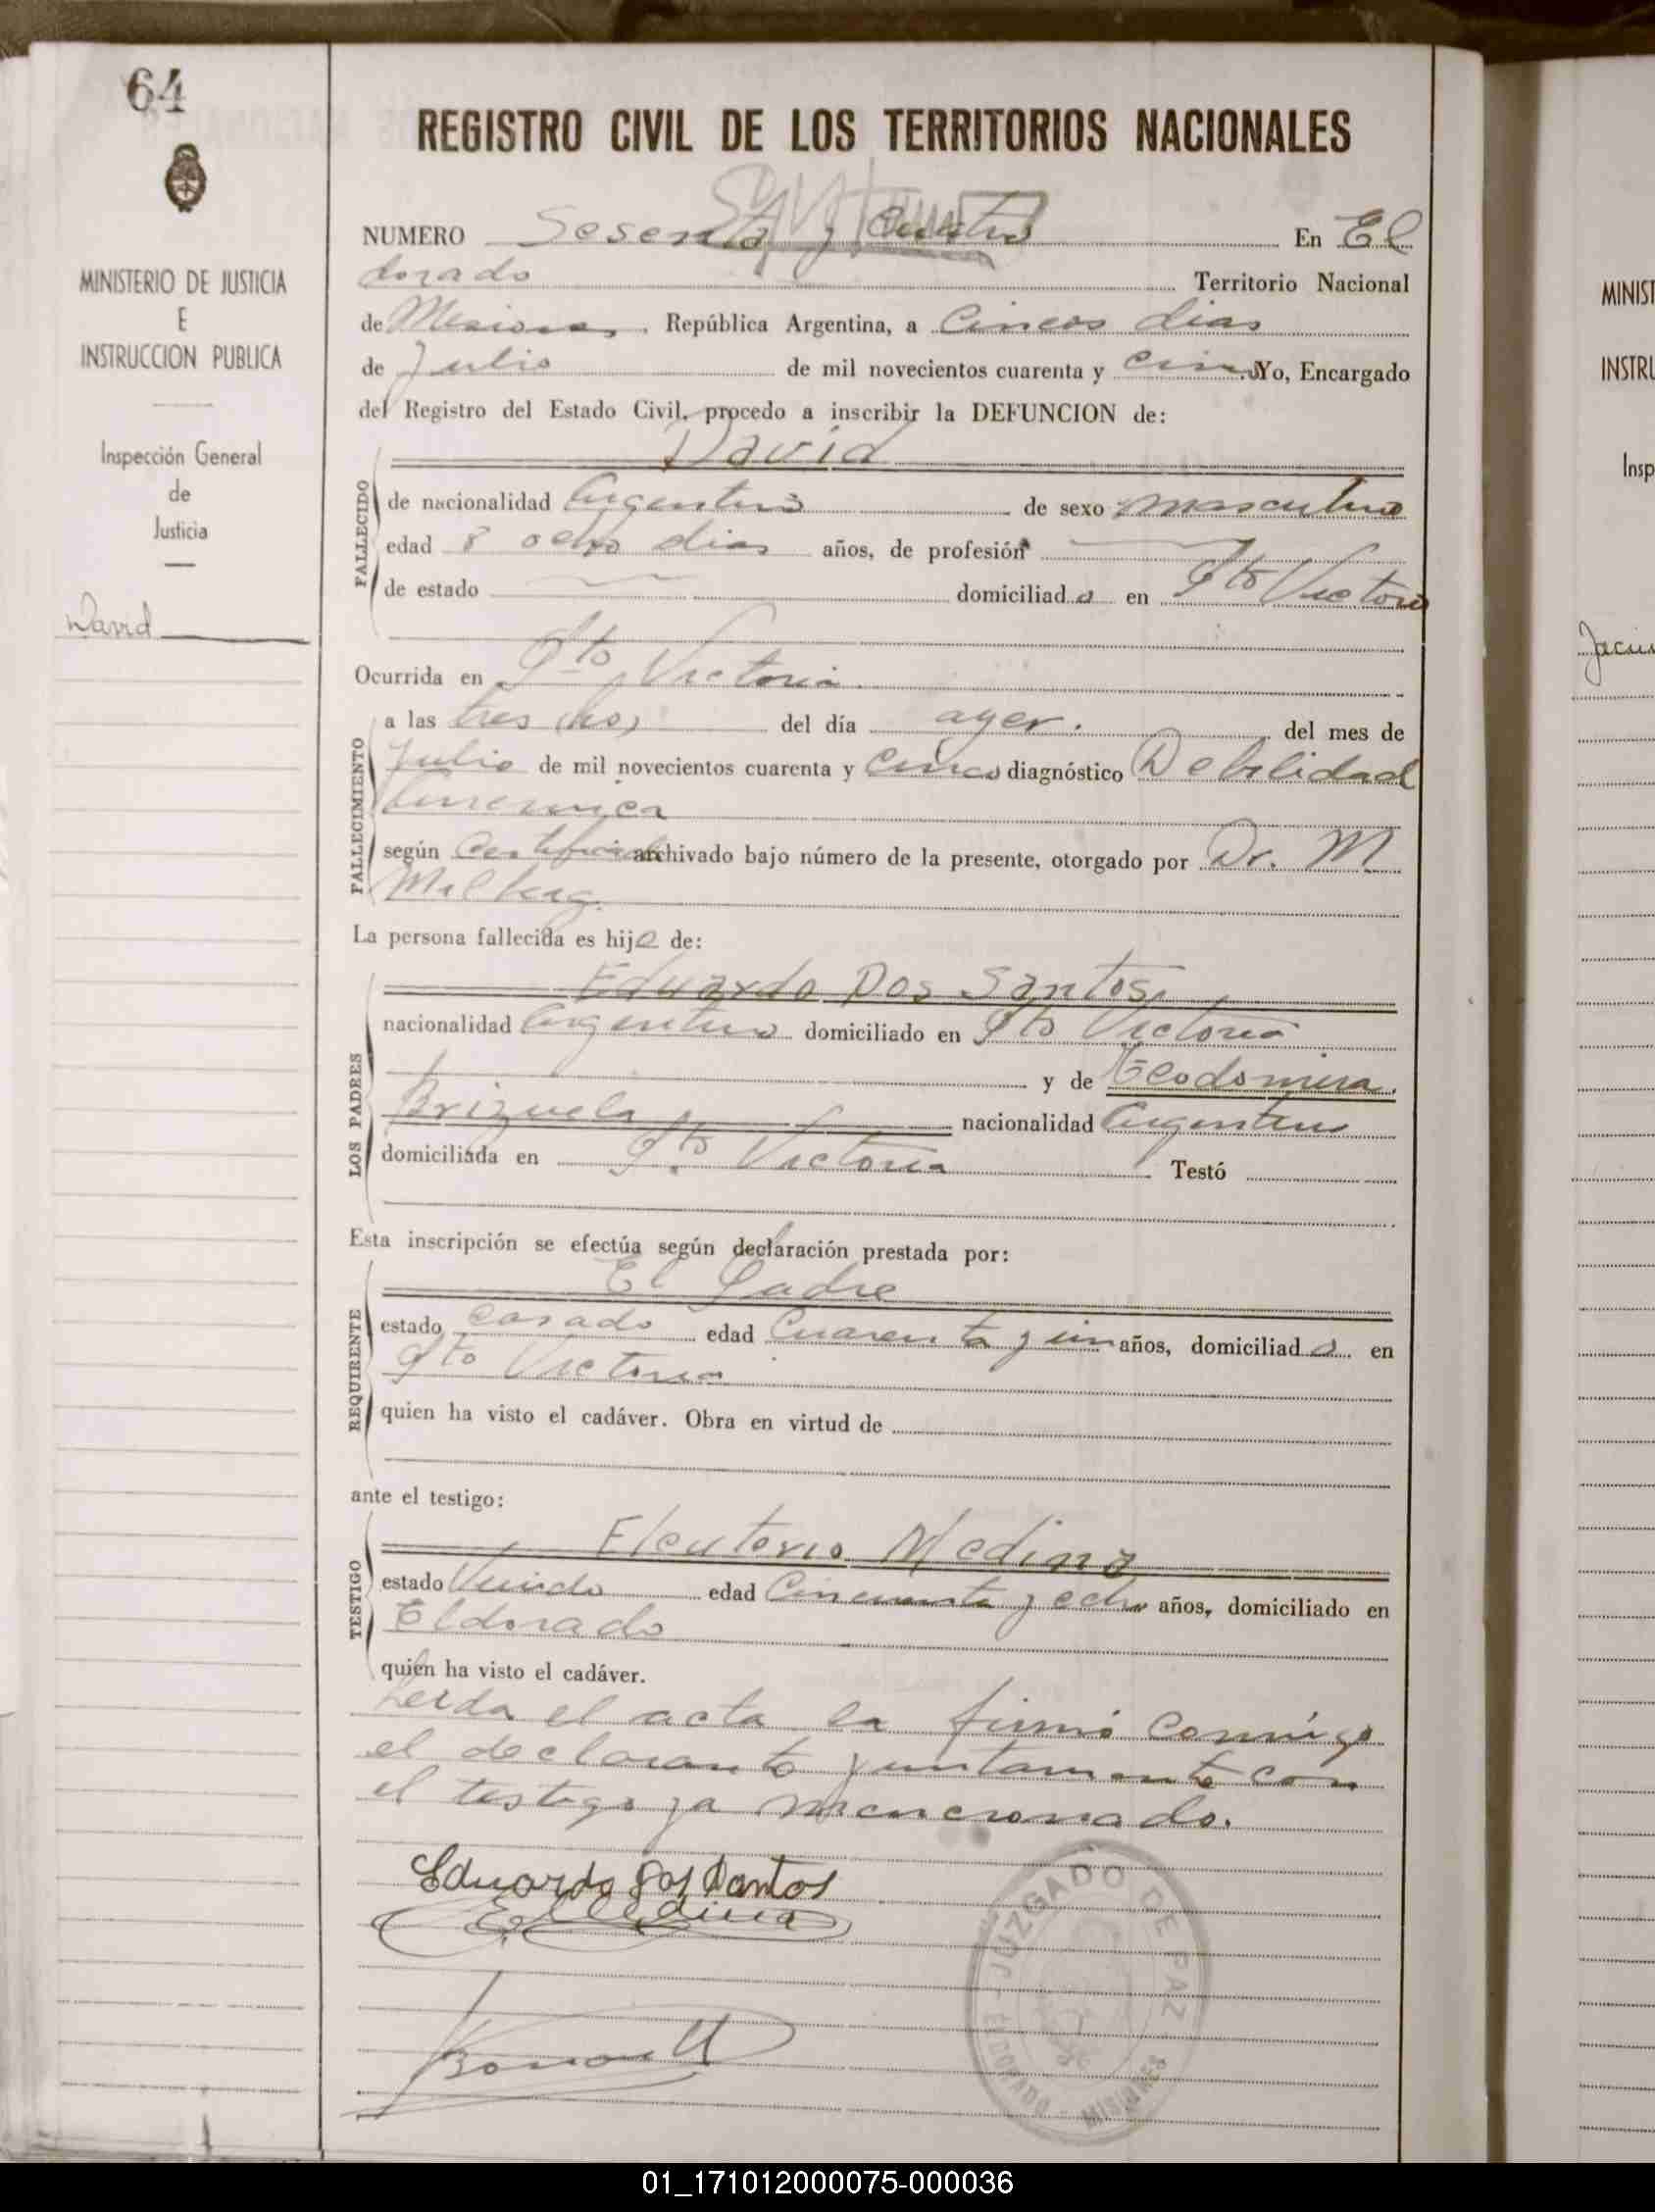 64
MINISTERIO DE JUSTICIA
E
INSTRUCCION PUBLICA
Inspección General
de
Justicia
David
REGISTRO CIVIL DE LOS TERRITORIOS NACIONALES
NUMERO Sesenta y Cuatro En El
dorado Territorio Nacional
de Misiones, República Argentina, a Cincos dias
de Julio de mil novecientos cuarenta y cinco Yo, Encargado
del Registro del Estado Civil, procedo a inscribir la DEFUNCION de:
David
FALLECIDO
de nacionalidad Argentino de sexo masculino
edad 8 ocho dias años, de profesión
de estado domiciliado en Pto Victoria
Ocurrida en Pto Victoria
FALLECIMIENTO
a las tres (hs) del día ayer. del mes de
Julio de mil novecientos cuarenta y Cinco diagnóstico Debilidad
según Certificado archivado bajo número de la presente, otorgado por Dr. M
Milberg.
La persona fallecida es hijo de:
LOS PADRES
Eduardo Dos Santos
nacionalidad Argentino domiciliado en Pto Victoria
y de Teodomira
Brizuela nacionalidad Argentina
domiciliada en Pto Victoria Testó
Esta inscripción se efectúa según declaración prestada por:
REQUIRENTE
El Padre
estado casado edad Cuarenta y un años, domiciliado en
Pto Victoria
quien ha visto el cadáver. Obra en virtud de
ante el testigo:
TESTIGO
Eleuterio Medina
estado Viudo edad Cincuenta y ocho años, domiciliado en
Eldorado
quien ha visto el cadáver.
Leida el acta la firmó conmigo
el declarante juntamente con
el testigo ya mencionado.
Eduardo Dos Santos
E. Medina
JUZGADO DE PAZ
ELDORADO - MISIONES
MINIST
INSTRU
Insp
01_171012000075-000036